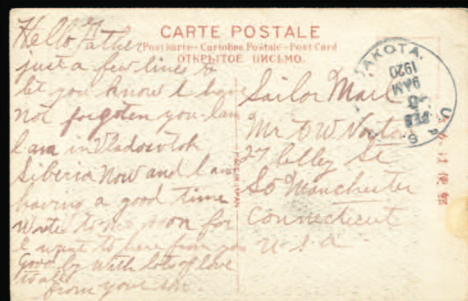 CARTE POSTALE
Postkarte - Cartolina Postale - Post Card
ОТКРЫТОЕ ПИСЬМО.
Hello Father
just a few lines to
let you know I have
not forgoten you I am
I am in Vladovstok
Siberia now and I am
having a good time
write to me soon for
I want to here from you
Good by with lots of love
to all
from your son
Sailor Mail
Mr O W
27 St
So Manchester
Connecticut
U.S.A
AKOTA.
1920
9 AM
FEB
U.S.S.